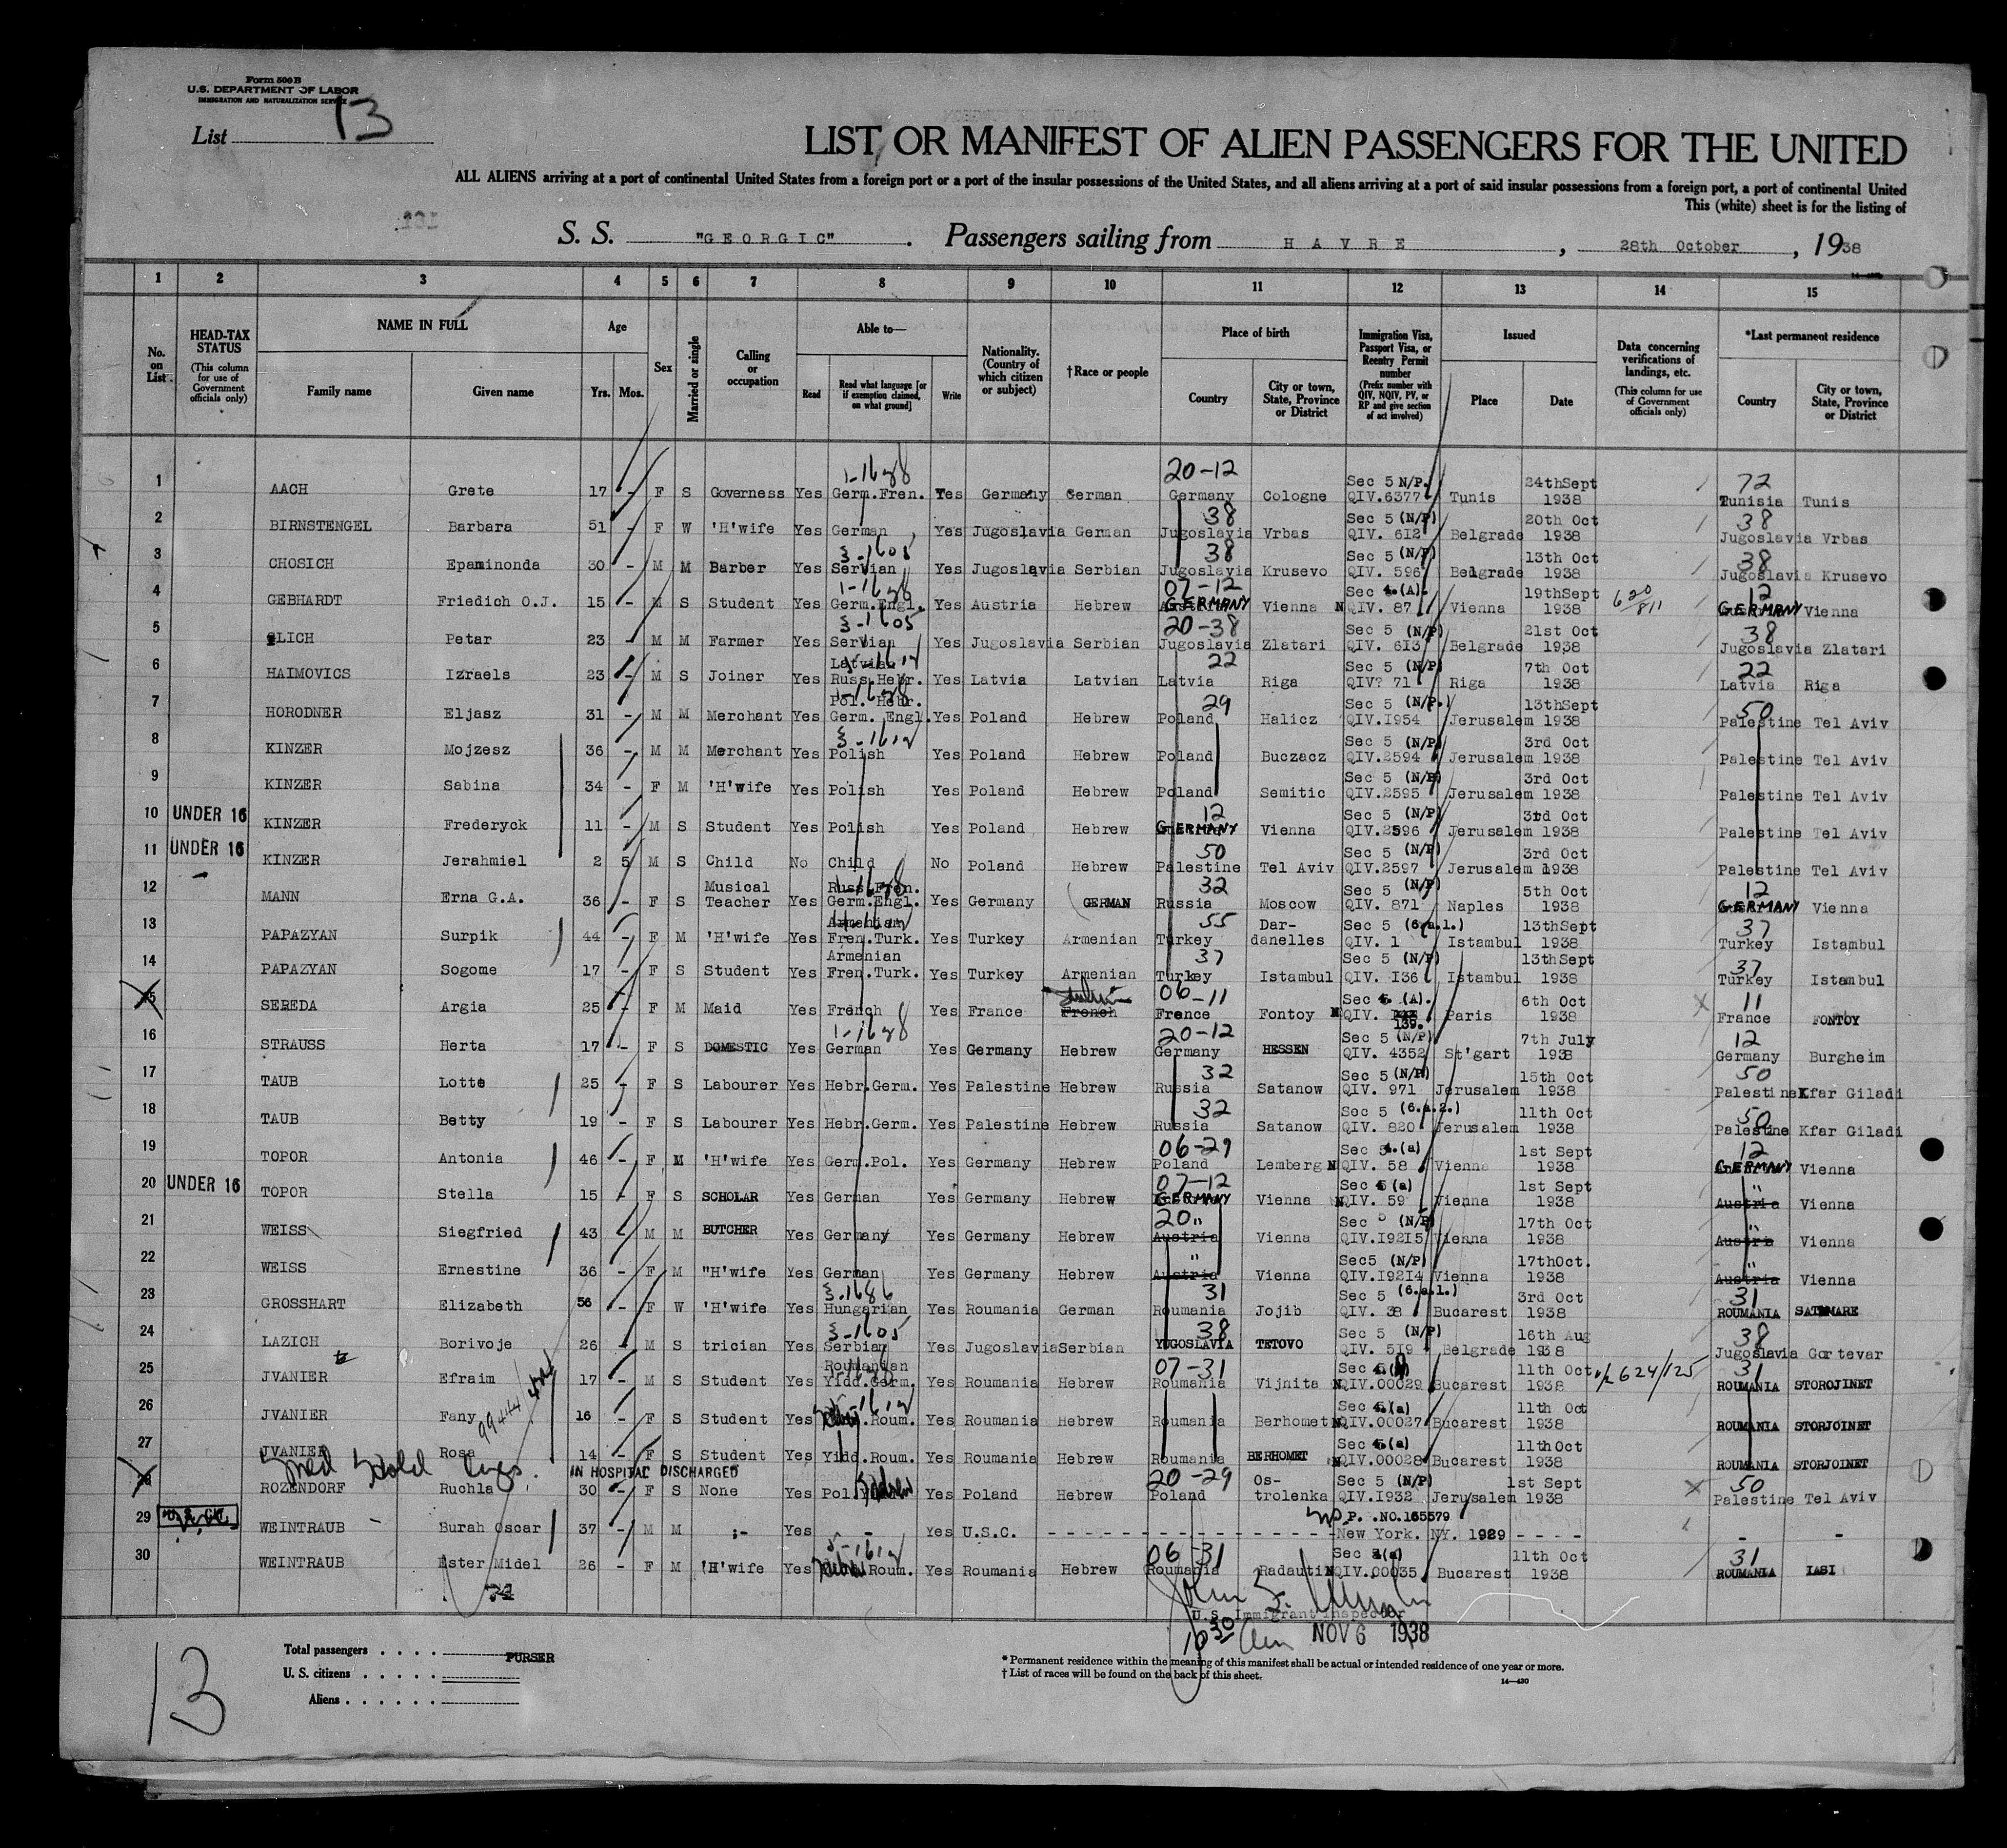 Form 500 B
U.S. DEPARTMENT OF LABOR
IMMIGRATION AND NATURALIZATION SERVICE
List 13
LIST OR MANIFEST OF ALIEN PASSENGERS FOR THE UNITED
ALL ALIENS arriving at a port of continental United States from a foreign port or a port of the insular possessions of the United States, and all aliens arriving at a port of said insular possessions from a foreign port, a port of continental United
This (white) sheet is for the listing of
S. S. "GEORGIC". Passengers sailing from HAVRE, 28th October, 1938
1 2 3 4 5 6 7 8 9 10 11 12 13 14 15
No. on List HEAD-TAX STATUS (This column for use of Government officials only) NAME IN FULL Family name Given name Age Yrs. Mos. Sex Married or single Calling or occupation Able to— Read Read what language [or if exemption claimed, on what ground] Write Nationality. (Country of which citizen or subject) †Race or people Place of birth Country City or town, State, Province or District Immigration Visa, Passport Visa, or Reentry Permit number (Prefix number with QIV, NQIV, PV, or RP and give section of act involved) Issued Place Date Data concerning verifications of landings, etc. (This column for use of Government officials only) *Last permanent residence Country City or town, State, Province or District
1 AACH Grete 17 - F S Governess Yes Germ.Fren. Yes Germany German 20-12 Germany Cologne Sec 5 N/P. QIV.6377 Tunis 24thSept 1938 72 Tunisia Tunis
2 BIRNSTENGEL Barbara 51 - F W 'H'wife Yes German Yes Jugoslavia German 38 Jugoslavia Vrbas Sec 5 (N/P) QIV. 6I2 Belgrade 20th Oct 1938 38 Jugoslavia Vrbas
3 CHOSICH Epaminonda 30 - M M Barber Yes 3-1605 Servian Yes Jugoslavia Serbian 38 Jugoslavia Krusevo Sec 5 (N/P) QIV. 596 Belgrade 13th Oct 1938 38 Jugoslavia Krusevo
4 GEBHARDT Friedich O.J. 15 - M S Student Yes Germ.Engl. Yes Austria Hebrew 07-12 GERMANY Vienna N Sec 4.(A). QIV. 87 Vienna 19thSept 1938 620/811 12 GERMANY Vienna
5 GLICH Petar 23 - M M Farmer Yes 3-1605 Servian Yes Jugoslavia Serbian 20-38 Jugoslavia Zlatari Sec 5 (N/P) QIV. 6I3 Belgrade 21st Oct 1938 38 Jugoslavia Zlatari
6 HAIMOVICS Izraels 23 - M S Joiner Yes Latvian Russ.Hebr. Yes Latvia Latvian 22 Latvia Riga Sec 5 (N/P) QIV? 71 Riga 7th Oct 1938 22 Latvia Riga
7 HORODNER Eljasz 31 - M M Merchant Yes Pol. Hebr. Germ. Engl. Yes Poland Hebrew 29 Poland Halicz Sec 5 (N/P.) QIV.I954 Jerusalem 13thSept 1938 50 Palestine Tel Aviv
8 KINZER Mojzesz 36 - M M Merchant Yes Polish Yes Poland Hebrew Poland Buczacz Sec 5 (N/P) QIV.2594 Jerusalem 3rd Oct 1938 Palestine Tel Aviv
9 KINZER Sabina 34 - F M 'H'wife Yes Polish Yes Poland Hebrew Poland Semitic Sec 5 (N/P) QIV.2595 Jerusalem 3rd Oct 1938 Palestine Tel Aviv
10 UNDER 16 KINZER Frederyck 11 - M S Student Yes Polish Yes Poland Hebrew 12 GERMANY Vienna Sec 5 (N/P) QIV.2596 Jerusalem 3rd Oct 1938 Palestine Tel Aviv
11 UNDER 16 KINZER Jerahmiel 2 5 M S Child No Child No Poland Hebrew 50 Palestine Tel Aviv Sec 5 (N/P) QIV.2597 Jerusalem 3rd Oct 1938 Palestine Tel Aviv
12 MANN Erna G.A. 36 - F S Musical Teacher Yes Russ.Fren. Germ.Engl. Yes Germany GERMAN 32 Russia Moscow Sec 5 (N/P) QIV. 871 Naples 5th Oct 1938 12 GERMANY Vienna
13 PAPAZYAN Surpik 44 - F M 'H'wife Yes Armenian Fren.Turk. Yes Turkey Armenian 55 Turkey Dardanelles Sec 5 (6.a.1.) QIV. 1 Istambul 13thSept 1938 37 Turkey Istambul
14 PAPAZYAN Sogome 17 - F S Student Yes Armenian Fren.Turk. Yes Turkey Armenian 37 Turkey Istambul Sec 5 (N/P) QIV. I36 Istambul 13thSept 1938 37 Turkey Istambul
15 SEREDA Argia 25 - F M Maid Yes French Yes France French 06-11 France Fontoy N Sec 4 (A). QIV. 139. Paris 6th Oct 1938 11 France FONTOY
16 STRAUSS Herta 17 - F S DOMESTIC Yes German Yes Germany Hebrew 20-12 Germany HESSEN Sec 5 (N/P) QIV. 4352 St'gart 7th July 1938 12 Germany Burgheim
17 TAUB Lotte 25 - F S Labourer Yes Hebr.Germ. Yes Palestine Hebrew 32 Russia Satanow Sec 5 (N/P) QIV. 971 Jerusalem 15th Oct 1938 50 Palestine Kfar Giladi
18 TAUB Betty 19 - F S Labourer Yes Hebr.Germ. Yes Palestine Hebrew 32 Russia Satanow Sec 5 (6.a.2.) QIV. 820 Jerusalem 11th Oct 1938 50 Palestine Kfar Giladi
19 TOPOR Antonia 46 - F M 'H'wife Yes Germ.Pol. Yes Germany Hebrew 06-29 Poland Lemberg N Sec 4.(a) QIV. 58 Vienna 1st Sept 1938 12 GERMANY Vienna
20 UNDER 16 TOPOR Stella 15 - F S SCHOLAR Yes German Yes Germany Hebrew 07-12 GERMANY Vienna N Sec 4 (a) QIV. 59 Vienna 1st Sept 1938 " Austria Vienna
21 WEISS Siegfried 43 - M M BUTCHER Yes Germany Yes Germany Hebrew 20 " Austria Vienna Sec 5 (N/P) QIV.I92I5 Vienna 17th Oct 1938 " Austria Vienna
22 WEISS Ernestine 36 - F M "H'wife Yes German Yes Germany Hebrew " Austria Vienna Sec5 (N/P) QIV.I92I4 Vienna 17thOct. 1938 " Austria Vienna
23 GROSSHART Elizabeth 56 - F W 'H'wife Yes 3-1686 Hungarian Yes Roumania German 31 Roumania Jojib Sec 5 (6.a.1.) QIV. 38 Bucarest 3rd Oct 1938 31 ROUMANIA SATMARE
24 LAZICH Borivoje 26 - M S trician Yes 3-1605 Serbian Yes Jugoslavia Serbian 38 YUGOSLAVIA TETOVO Sec 5 (N/P) QIV. 5I9 Belgrade 16th Aug 1938 38 Jugoslavia Gortevar
25 JVANIER Efraim 17 - M S Student Yes Roumanian Yidd.Germ. Yes Roumania Hebrew 07-31 Roumania Vijnita N Sec QIV.00029 Bucarest 11th Oct 1938 624/125 31 ROUMANIA STOROJINET
26 JVANIER Fany 16 - F S Student Yes Roum. Yes Roumania Hebrew Roumania Berhomet N Sec 4(a) QIV.00027 Bucarest 11th Oct 1938 ROUMANIA STORJOINET
27 JVANIER Rosa 14 - F S Student Yes Yidd.Roum. Yes Roumania Hebrew Roumania BERHOMET N Sec 4(a) QIV.00028 Bucarest 11thOct 1938 ROUMANIA STORJOINET
Med Hold IN HOSPITAL DISCHARGED
28 ROZENDORF Ruchla 30 - F S None Yes Pol. Yes Poland Hebrew 20-29 Poland Ostrolenka Sec 5 (N/P) QIV.I932 Jerusalem 1st Sept 1938 50 Palestine Tel Aviv
29 WEINTRAUB Burah Oscar 37 - M M ;- Yes - Yes U.S.C. P. .NO.165579 New York. NY. 1929 - -
30 WEINTRAUB Ester Midel 26 - F M 'H'wife Yes Roum. Yes Roumania Hebrew 06-31 Roumania Radauti N Sec 4(a) QIV.00035 Bucarest 11th Oct 1938 31 ROUMANIA IASI
U.S. Immigrant Inspector
10 30 am NOV 6 1938
13
Total passengers . . . . PURSER
U. S. citizens . . . . .
Aliens . . . . . .
* Permanent residence within the meaning of this manifest shall be actual or intended residence of one year or more.
† List of races will be found on the back of this sheet.
14—430